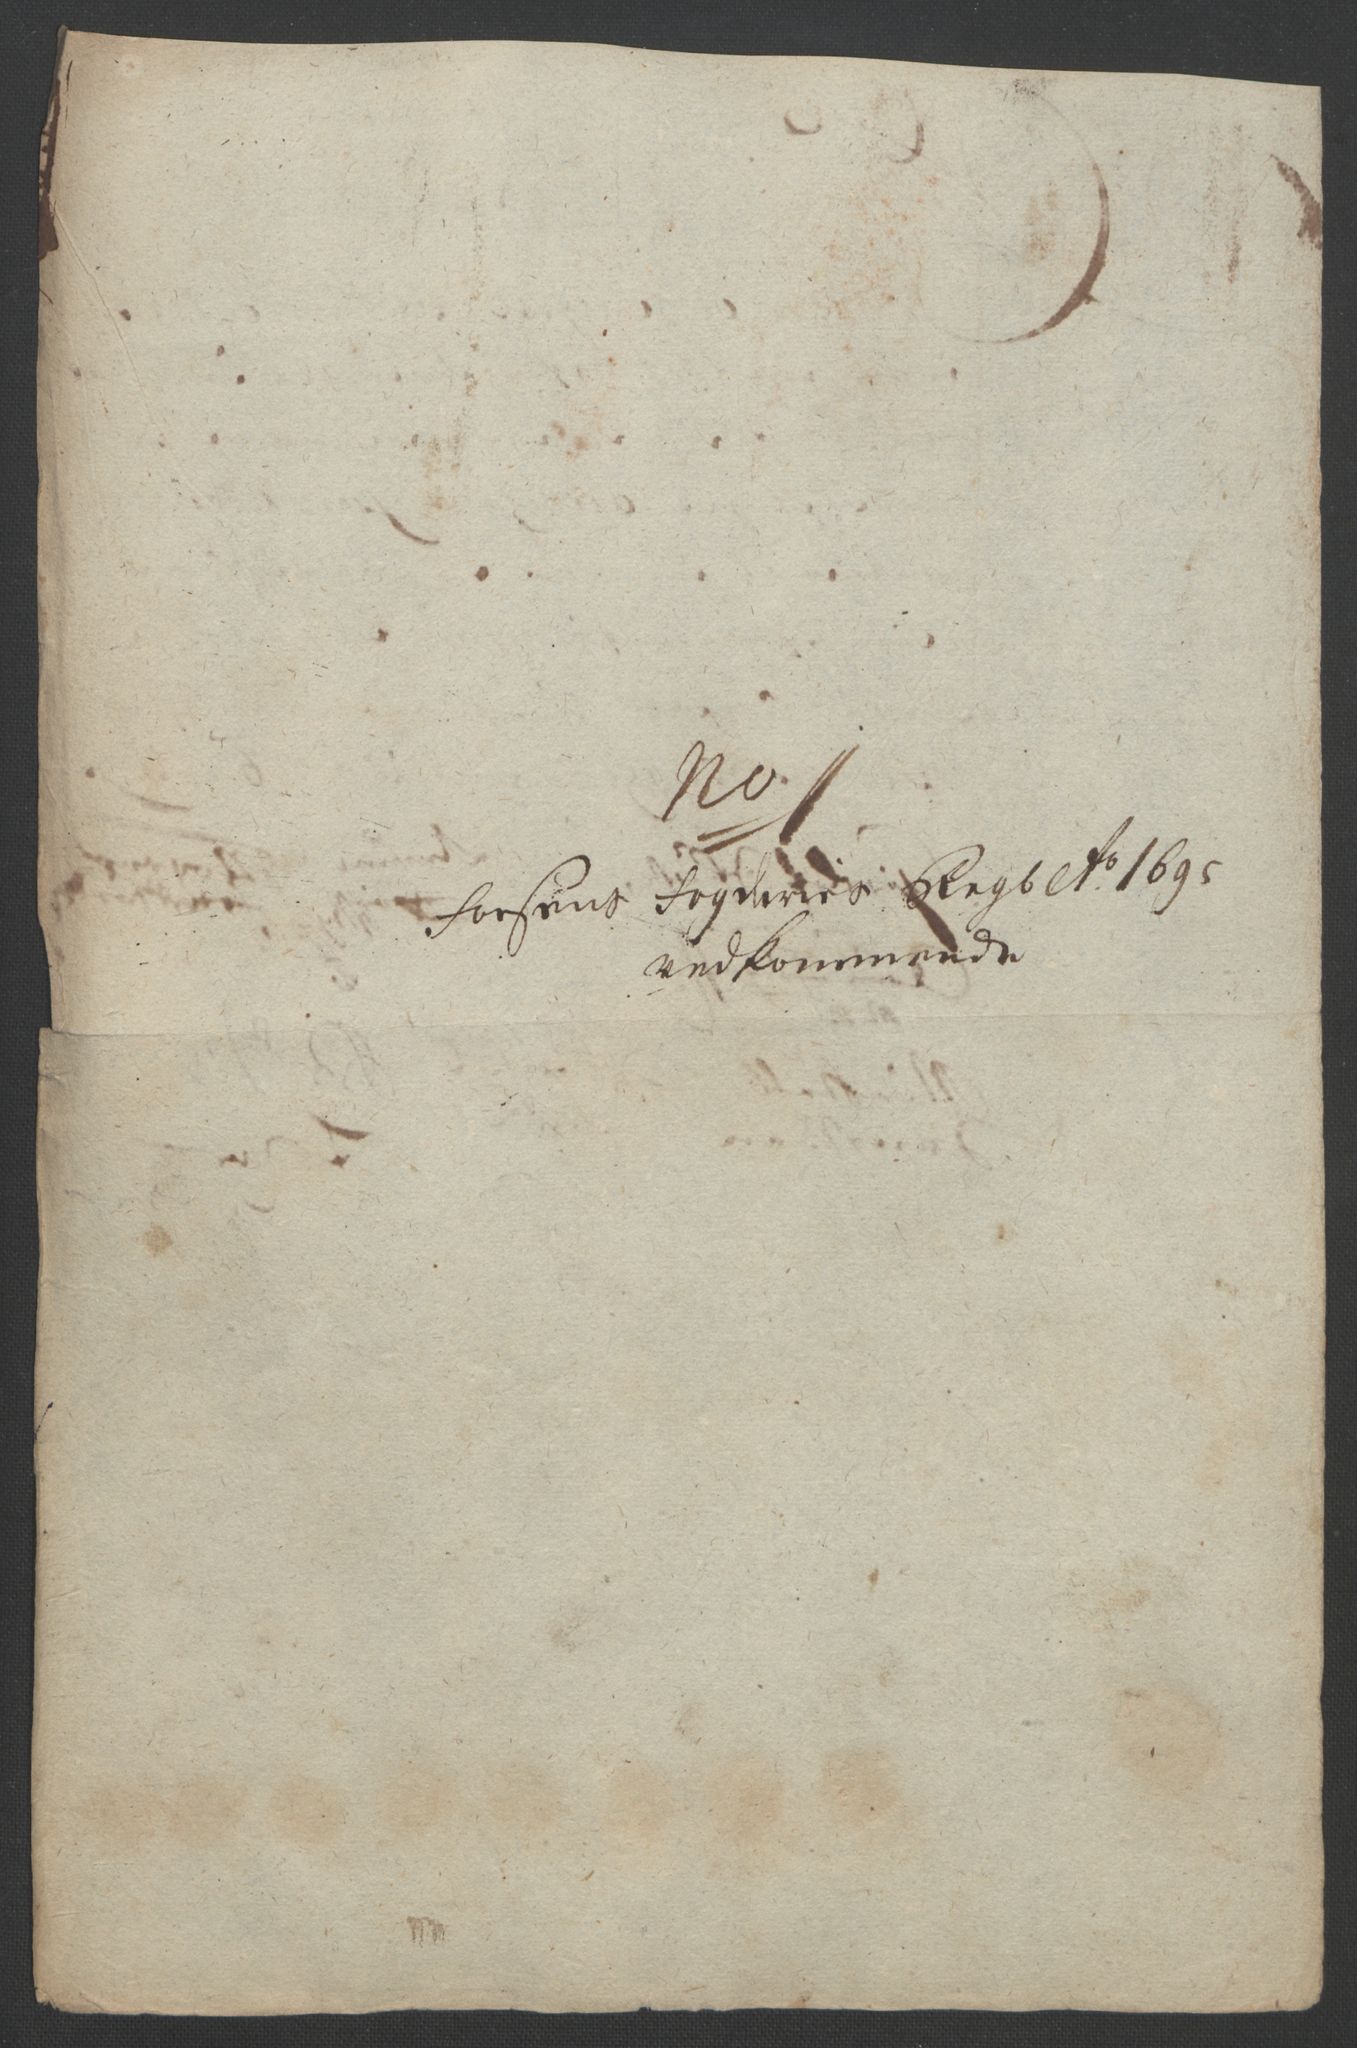 No 1
Fosens Fogderies Regb Ao. 1695
vedkommende